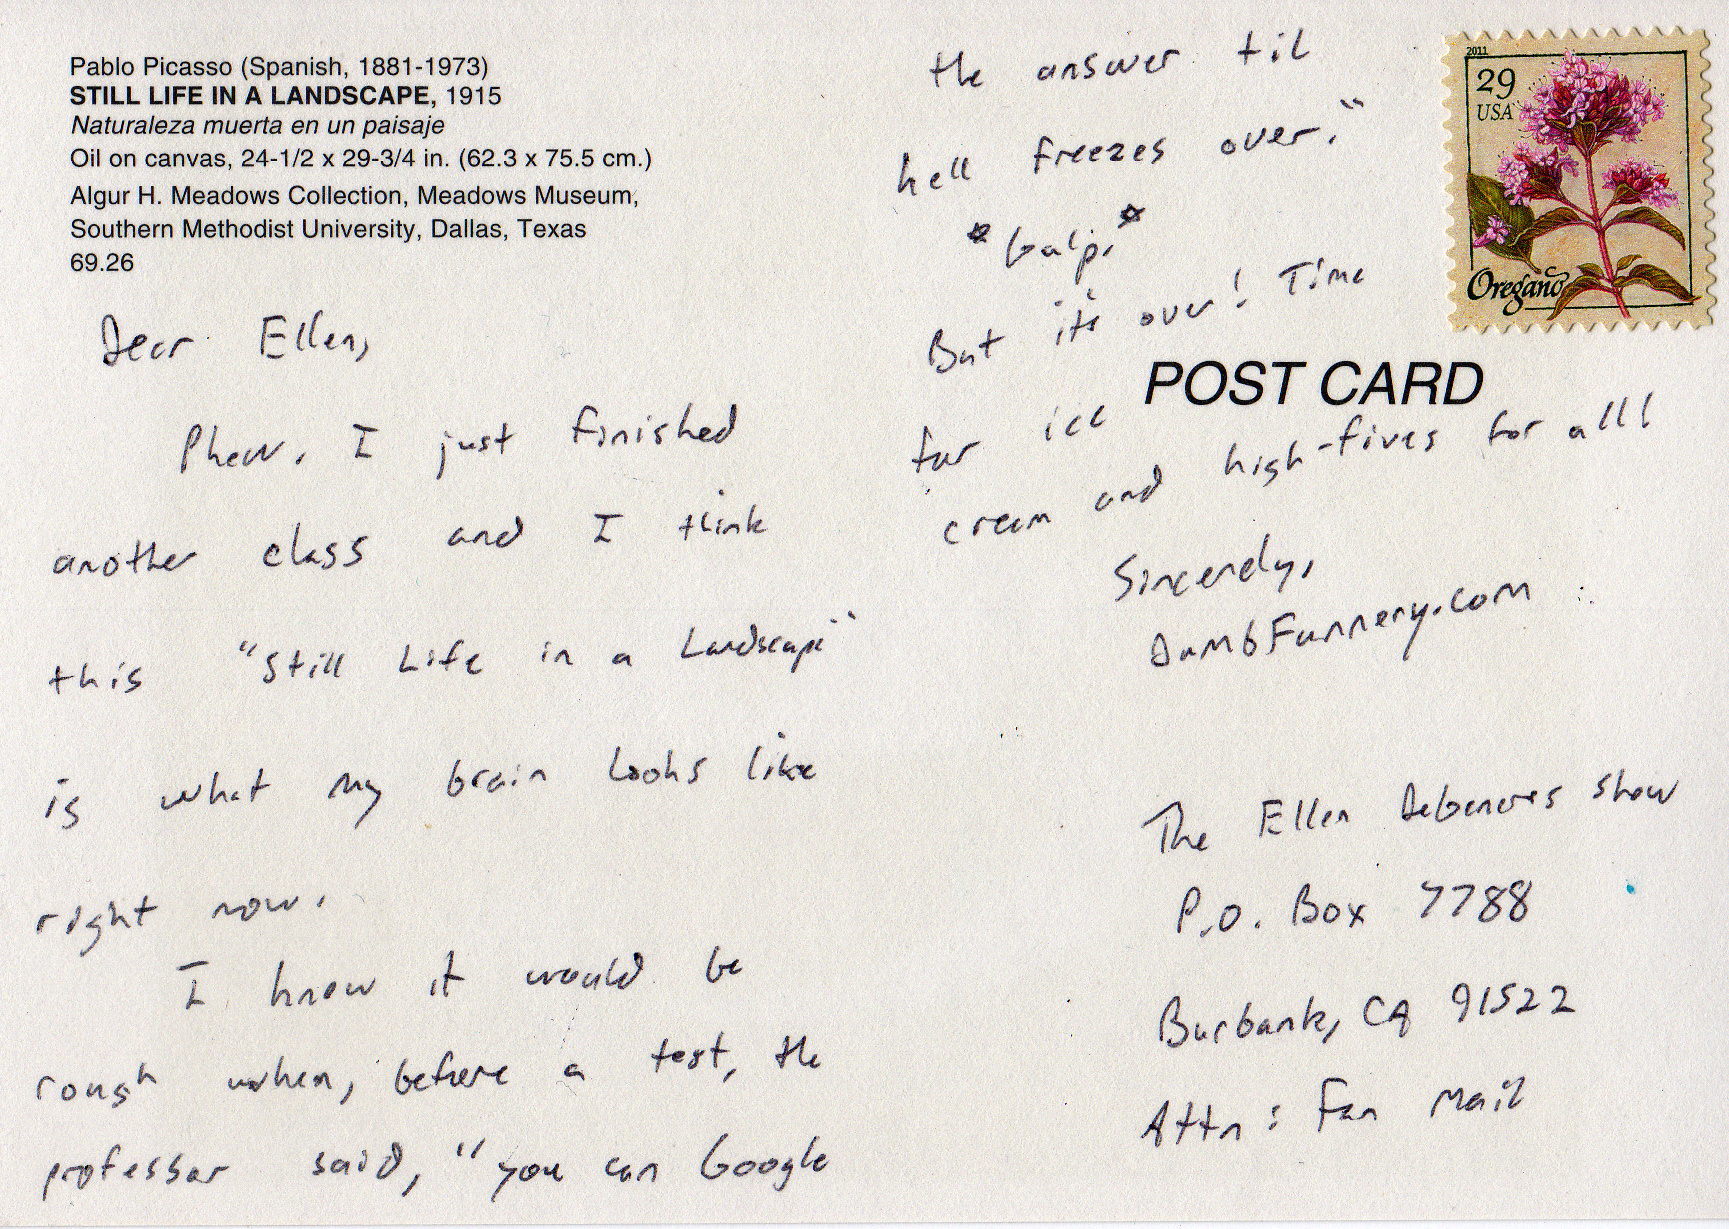 Pablo Picasso (Spanish, 1881-1973)
STILL LIFE IN A LANDSCAPE, 1915
Naturaleza muerta en un paisaje
Oil on canvas, 24-1/2 x 29-3/4 in. (62.3 x 75.5 cm.)
Algur H. Meadows Collection, Meadows Museum,
Southern Methodist University, Dallas, Texas
69.26
Dear Ellen,
Phew. I just finished
another class and I think
this "Still Life in a Landscape"
is what my brain looks like
right now.
I knew it would be
rough when, before a test, the
professor said, "you can Google
the answer til
hell freezes over."
*Gulp.*
But it's over! Time
for ice
cream and high-fives for all!
Sincerely,
DumbFunnery.com
2011
29
USA
Oregano
POST CARD
The Ellen Degeneres Show
P.O. Box 7788
Burbank, CA 91522
Attn: Fan Mail